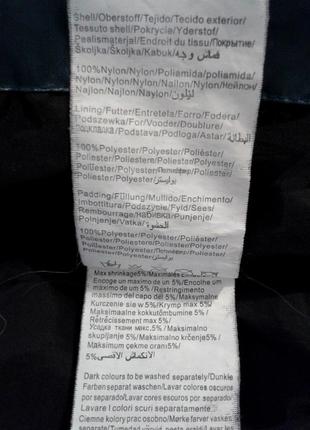 Shell/Oberstoff/Tejido/Tecido exterior/
Tessuto shell/Pokrycie/Yderstof/
Pealismaterjal/Endroit du tissu/Покрытие/
Školjka/Školjka/Kabuk/قماش وجه
100%Nylon/Nylon/Poliamida/poliamida/
Nylon/Nylon/Nylon/Nailon/Nylon/Нейлон/
Najlon/Najlon/Naylon/نايلون
Lining/Futter/Entreteta/Forro/Fodera/
Podszewka/For/Vooder/Doublure/
подкладка/Podstava/Podloga/Astar/البطانة
100%Polyester/Polyester/Poliéster/
Poliéster/Poliestere/Poliester/
Polyester/Polyester/Polyester/
Poliester/Polyester/بوليستر
Padding/Füllung/Mullido/Enchimento/
Imbottitura/Podszycie/Fyld/Sees/
Rembourrage/Набивка/Punjenje/
Polnjenje/Vatka/الحشوة
100%Polyester/Polyester/Poliéster/
Poliéster/Poliestere/Poliester/
Polyester/Polyester/Polyester/
Poliester/Polyester/بوليستر
Max shrinkage5%/Maximales
Encoge un maximo de un 5%/Encolhe um
maximo de 5%/Restringimento
massimo del capo del 5%/Maksymalne
Kurczenie sie w5%/Krymp max 5%/
Maksimaalne kokkutõmbumine 5%/
Rétrécissement max 5%/
Усадка ткани макс.5%/Maksimalno
skupljanje 5%/Maksimalno krčenje5%/
Maksimum çekme oranı5%/
الانكماش الأقصى 5%
Dark colours to be washed separately/Dunkle
Farben separat waschen/Lavar colores oscuros
por separado/Lavar cores escuras em separado/
Lavare I colori scuri separatamente.